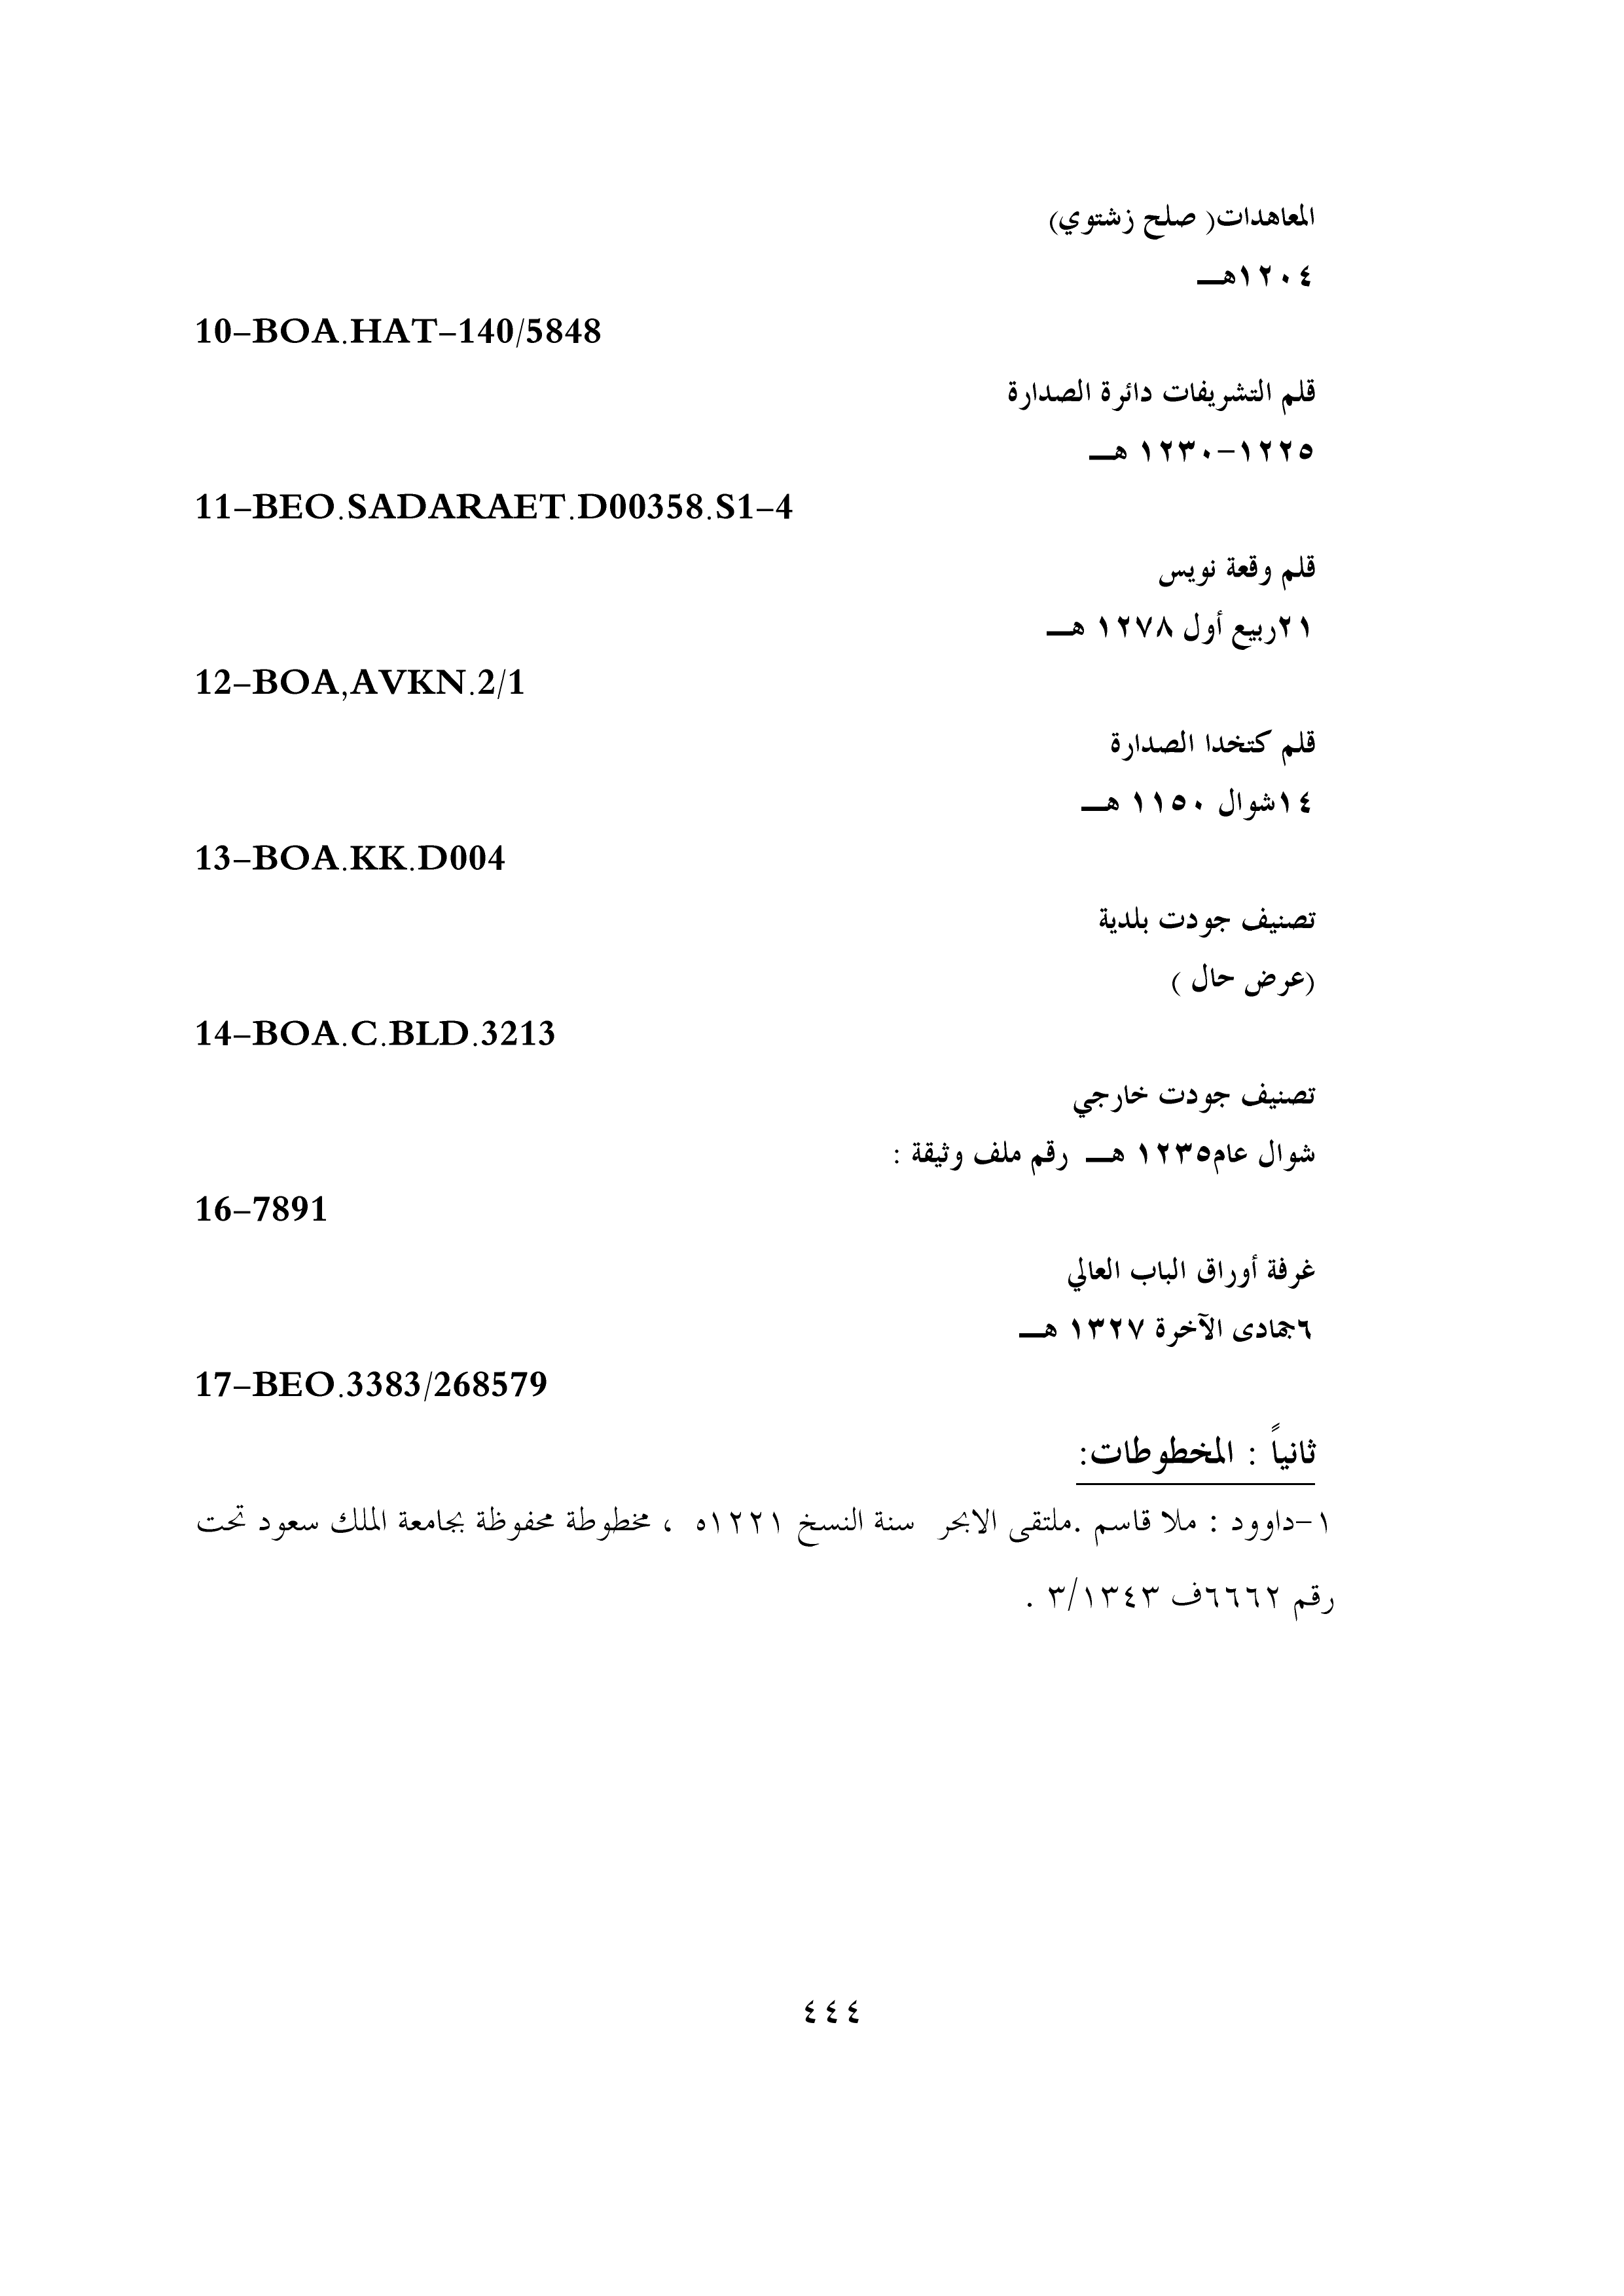 المعاهدات( صلح زشتوي)
١٢٠٤هـــ
10-BOA.HAT-140/5848
قلم التشريفات دائرة الصدارة
١٢٢٥-١٢٣٠ هـــ
11-BEO.SADARAET.D00358.S1-4
قلم وقعة نويس
٢١ربيع أول ١٢٧٨ هـــ
12-BOA,AVKN.2/1
قلم كتخدا الصدارة
١٤شوال ١١٥٠ هـــ
13-BOA.KK.D004
تصنيف جودت بلدية
(عرض حال )
14-BOA.C.BLD.3213
تصنيف جودت خارجي
شوال عام١٢٣٥ هـــ رقم ملف وثيقة :
16-7891
غرفة أوراق الباب العالي
٦جمادى الآخرة ١٣٢٧ هـــ
17-BEO.3383/268579
ثانياً : المخطوطات:
١-داوود : ملا قاسم .ملتقى الابحر سنة النسخ ١٢٢١ه ، مخطوطة محفوظة بجامعة الملك سعود تحت
رقم ٦٦٦٢ف ٣/١٣٤٣ .
٤٤٤